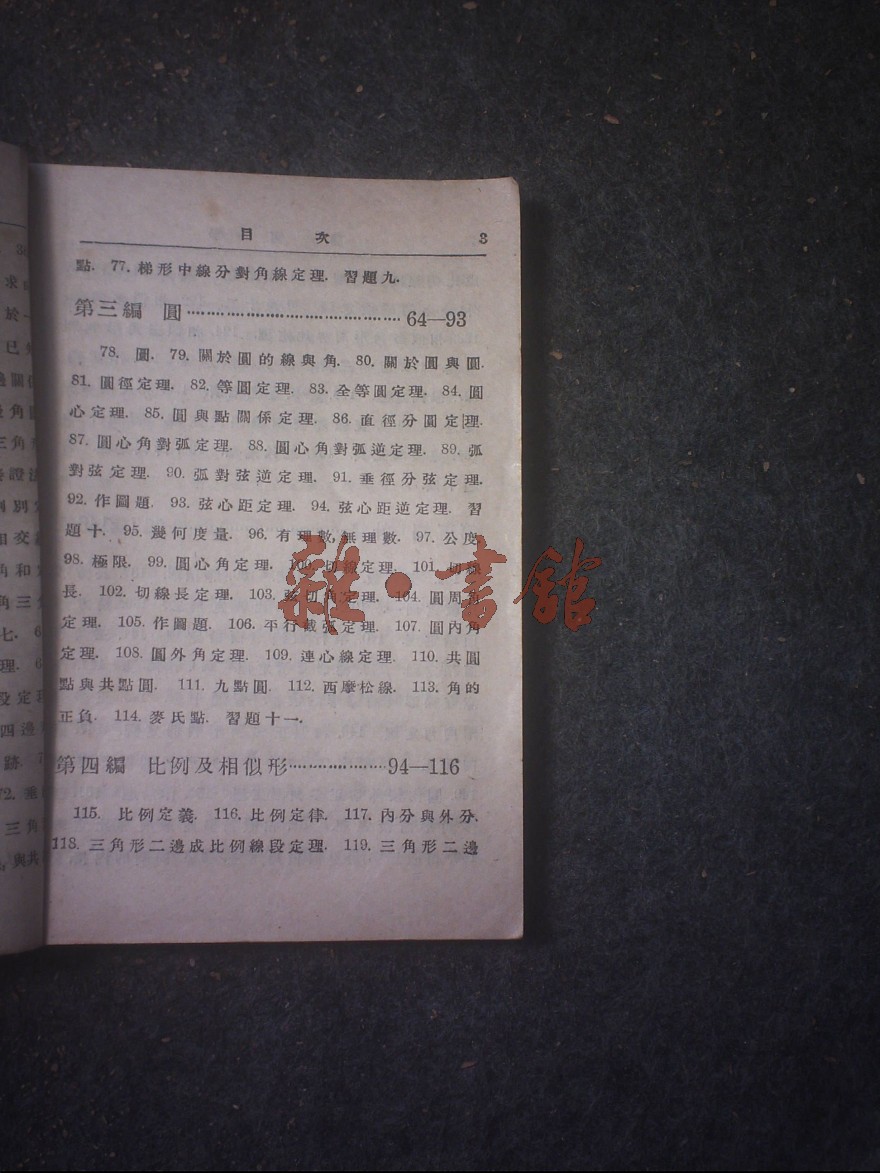 目 次 3
點. 77. 梯形中線分對角線定理. 習題九.
第三編 圓 64—93
78. 圓. 79. 關於圓的線與角. 80. 關於圓與圓.
81. 圓徑定理. 82. 等圓定理. 83. 全等圓定理. 84. 圓
心定理. 85. 圓與點關係定理. 86. 直徑分圓定理.
87. 圓心角對弧定理. 88. 圓心角對弧逆定理. 89. 弧
對弦定理. 90. 弧對弦逆定理. 91. 垂徑分弦定理.
92. 作圖題. 93. 弦心距定理. 94. 弦心距逆定理. 習
題十. 95. 幾何度量. 96. 有理數,無理數. 97. 公度.
98. 極限. 99. 圓心角定理. 100. 切線定理. 101. 切線
長. 102. 切線長定理. 103. 弦切角定理. 104. 圓周角
定理. 105. 作圖題. 106. 平行截弧定理. 107. 圓內角
定理. 108. 圓外角定理. 109. 連心線定理. 110. 共圓
點與共點圓. 111. 九點圓. 112. 西摩松線. 113. 角的
正負. 114. 麥氏點. 習題十一.
第四編 比例及相似形 94—116
115. 比例定義. 116. 比例定律. 117. 內分與外分.
118. 三角形二邊成比例線段定理. 119. 三角形二邊
雜·書館